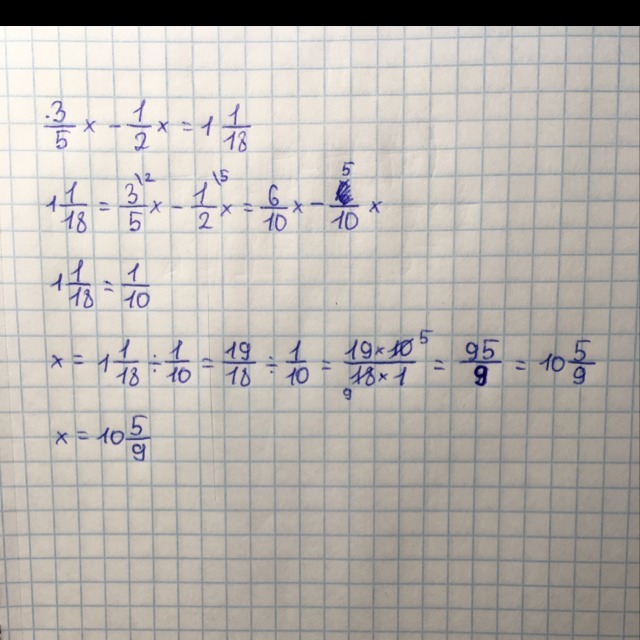 3/5 x - 1/2 x = 1 1/18
1 1/18 = 3\2/5 x - 1\5/2 x = 6/10 x - 5/10 x
1 1/18 = 1/10
x = 1 1/18 ÷ 1/10 = 19/18 ÷ 1/10 = 19 × 10 5/18 9 × 1 = 95/9 = 10 5/9
x = 10 5/9